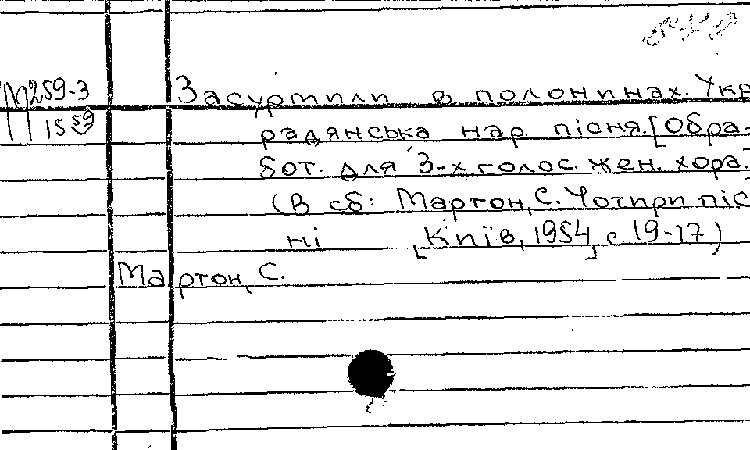 М259-3
1559
Засуртили в полонинах. Укр
радянська нар пісня. [Обра-
бот. для 3-х голос. жен. хора]
(В сб: Мартон, С. Чотири піс
ні [Київ, 1954] с 19-17)
Мартон, С.